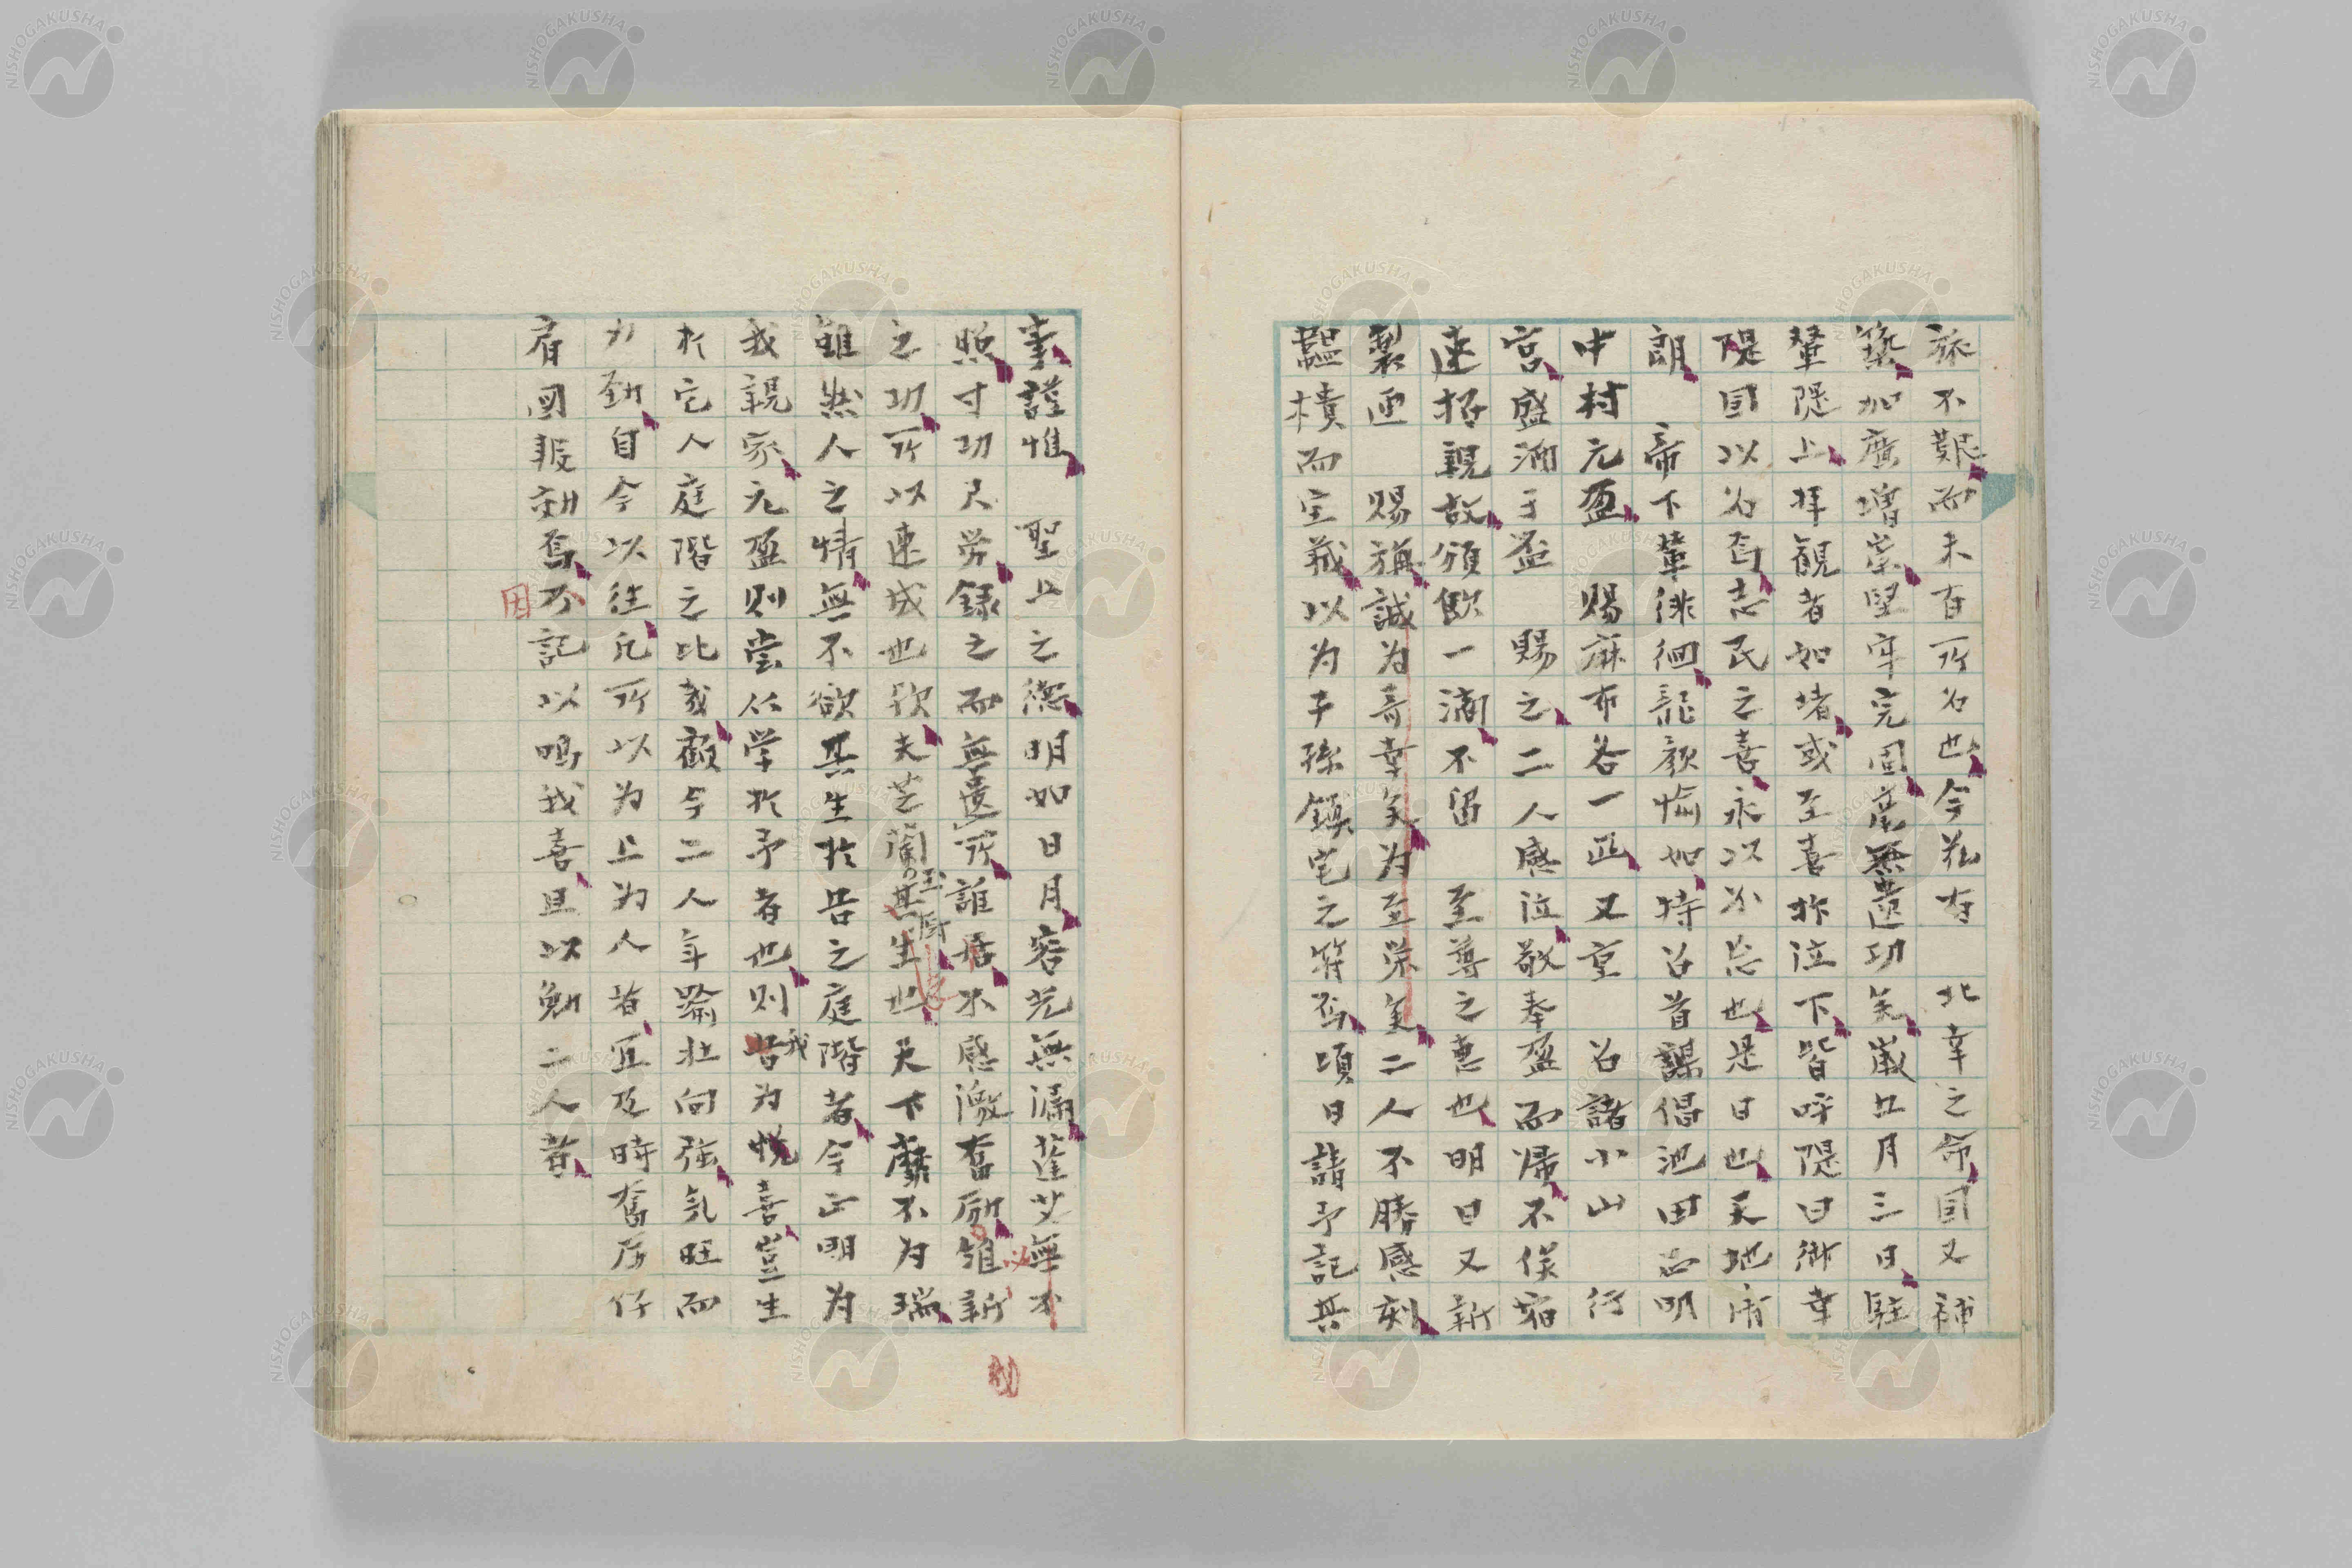 旅不艱而未有所為也今茲有　北幸之命因又補
築加廣増崇堅牢完固尽無遺功矣歳五月三日駐
輦隄上拝観者如堵或至喜抃泣下皆呼隄曰御幸
隄因以為吾志民之喜永以不忘也是日也天地清
朗　帝下輦徘徊龍顔愉如特召首謀倡池田忠明
中村元盈　賜麻布各一匹又重　召諸小山　行
宮盛酒于盃　賜之二人感泣敬奉盈而帰不俟宿
速招親故頒飲一滴不留　至尊之恵也明日又新
製匣　賜旃誠為奇幸矣為至栄矣二人不勝感刻
韞櫝而宝蔵以為子孫鎮宅之符焉頃日請予記其
事謹惟　聖上之徳明如日月容光無漏蓬艾無不
照寸功尺労録之而無遺所誰居不感激奮励雖新
之功所以速成也歟夫芝蘭玉樹其生也天下靡不為瑞
雖然人之情無不欲其生於吾之庭階者今正明為
我親家元盈則嘗従学於予者也則我為悦喜豈生
於它人庭階之比哉顧今二人年踰壮向強気旺而
力劲自今以往凡所以為上為人者宜及時奮厉仔
肩図報効焉乃記以鳴我喜且以勉二人者
因
以